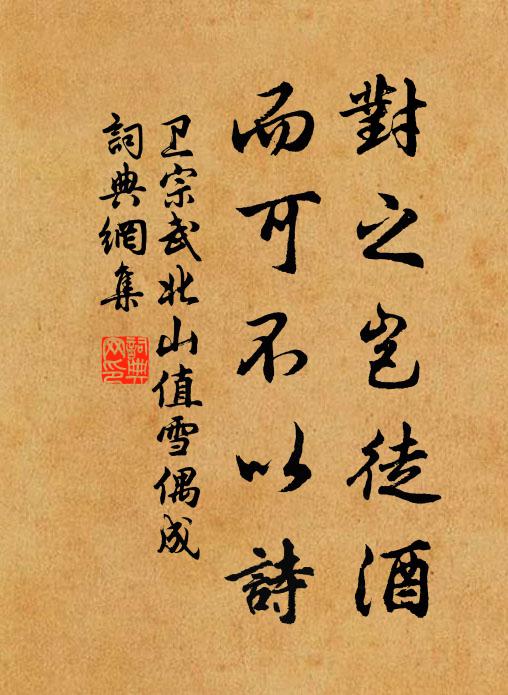 對之岂徒酒
而可不以詩
卫宗武北山值雪偶成
詞典網集
詞典网印